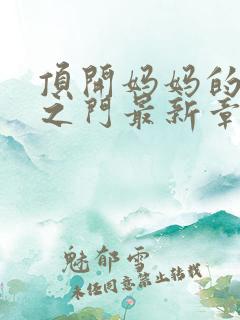 頂開妈妈的
之门最新章
魅郁雪
未经同意禁止转载